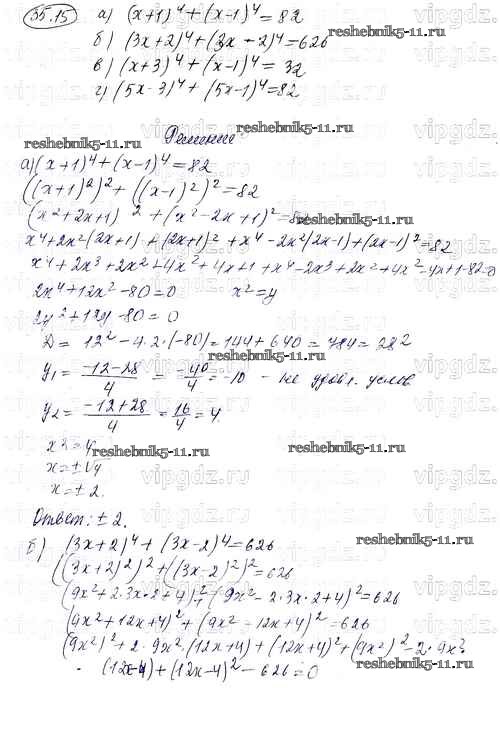 35.15 а) (x+1)⁴+(x-1)⁴=82
б) (3x+2)⁴+(3x-2)⁴=626
в) (x+3)⁴+(x-1)⁴= 32
г) (5x-3)⁴+(5x-1)⁴=82
reshebnik5-11.ru Решение: reshebnik5-11.ru
а) (x+1)⁴+(x-1)⁴=82
((x+1)²)²+((x-1)²)²=82
(x²+2x+1)²+(x²-2x+1)²=82
x⁴+2x²(2x+1)+(2x+1)²+x⁴-2x²(2x-1)+(2x-1)²=82
x⁴+2x³+2x²+4x²+4x+1+x⁴-2x³+2x²+4x²-4x+1-82=0
2x⁴+12x²-80=0 x²=y
2y²+12y-80=0
D= 12²-4·2·(-80)=144+640=784=28²
y₁= (-12-28)/4 = -40/4 =-10 - не удовл. услов.
y₂= (-12+28)/4 = 16/4 =4
x²=4 reshebnik5-11.ru reshebnik5-11.ru
x=±√4
x=±2.
Ответ: ±2.
reshebnik5-11.ru
б) (3x+2)⁴+(3x-2)⁴=626
((3x+2)²)²+((3x-2)²)²=626
(9x²+2·3x·2+4)²+(9x²-2·3x·2+4)²=626
(9x²+12x+4)²+(9x²-12x+4)²=626
(9x²)²+2·9x²·(12x+4)+(12x+4)²+(9x²)²-2·9x²·
·(12x-4)+(12x-4)²-626=0